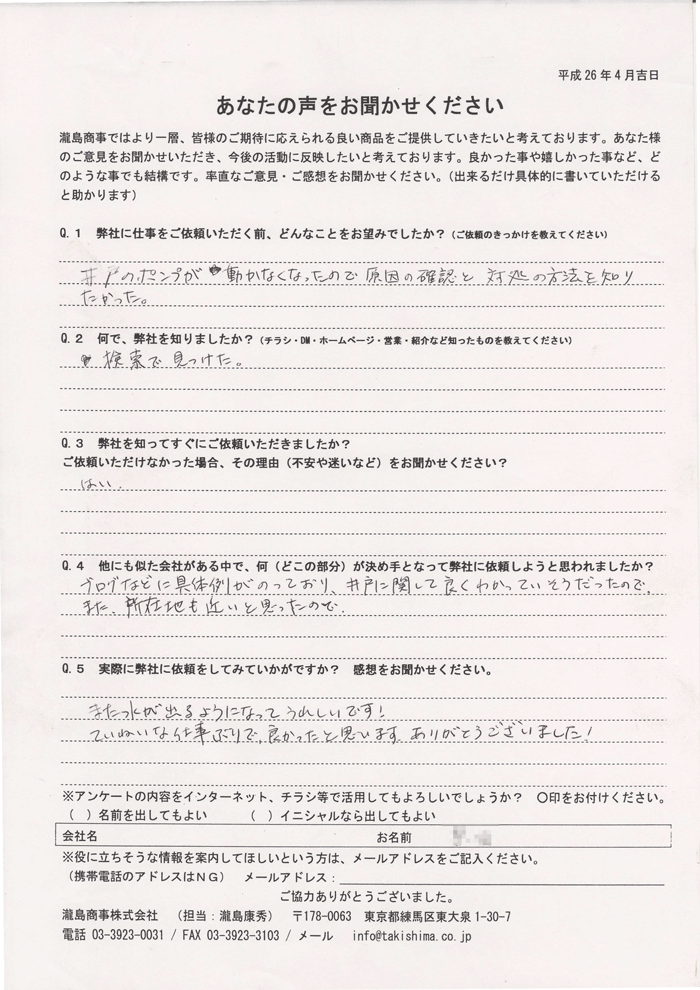 平成26年4月吉日
あなたの声をお聞かせください
瀧島商事ではより一層、皆様のご期待に応えられる良い商品をご提供していきたいと考えております。あなた様
のご意見をお聞かせいただき、今後の活動に反映したいと考えております。良かった事や嬉しかった事など、ど
のような事でも結構です。率直なご意見・ご感想をお聞かせください。（出来るだけ具体的に書いていただける
と助かります）
Q.1 弊社に仕事をご依頼いただく前、どんなことをお望みでしたか？（ご依頼のきっかけを教えてください）
井戸のポンプが動かなくなったので原因の確認と対処の方法を知り
たかった。
Q.2 何で、弊社を知りましたか？（チラシ・DM・ホームページ・営業・紹介など知ったものを教えてください）
検索で見つけた。
Q.3 弊社を知ってすぐにご依頼いただきましたか？
ご依頼いただけなかった場合、その理由（不安や迷いなど）をお聞かせください？
はい．
Q.4 他にも似た会社がある中で、何（どこの部分）が決め手となって弊社に依頼しようと思われましたか？
ブログなどに具体例がのっており、井戸に関して良くわかっていそうだったので、
また、所在地も近いと思ったので．
Q.5 実際に弊社に依頼をしてみていかがですか？ 感想をお聞かせください。
また水が出るようになってうれしいです！
ていねいな仕事ぶりで、良かったと思います。ありがとうございました！
※アンケートの内容をインターネット、チラシ等で活用してもよろしいでしょうか？ 〇印をお付けください。
（ ）名前を出してもよい （ ）イニシャルなら出してもよい
会社名 お名前
※役に立ちそうな情報を案内してほしいという方は、メールアドレスをご記入ください。
（携帯電話のアドレスはNG） メールアドレス：
ご協力ありがとうございました。
瀧島商事株式会社 （担当：瀧島康秀） 〒178-0063 東京都練馬区東大泉1-30-7
電話 03-3923-0031 / FAX 03-3923-3103 / メール info@takishima.co.jp